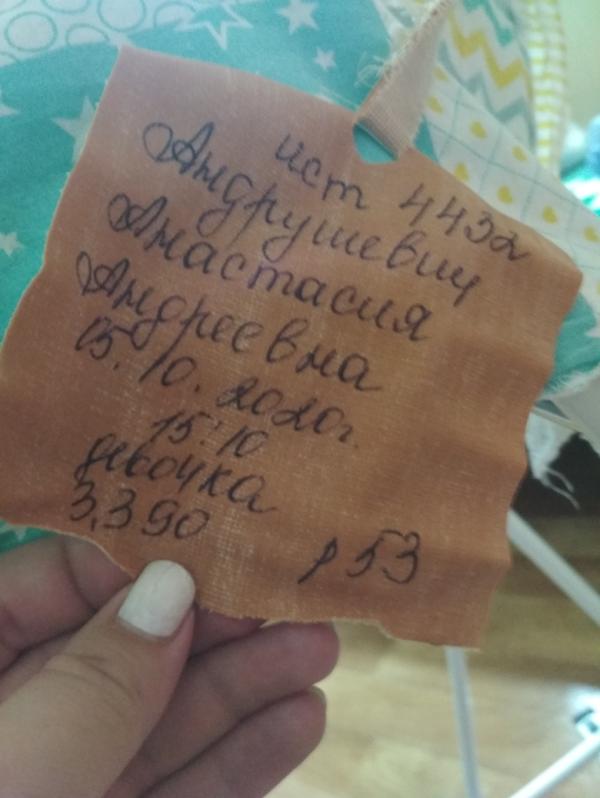 ист 4432
Андрушевич
Анастасия
Андреевна
05.10.2020г.
15:10
девочка
3,390 р 53